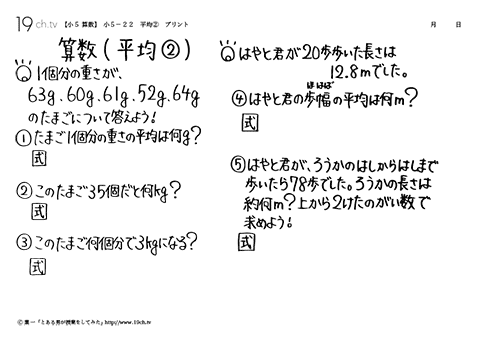 19ch.tv 【小5 算数】 小5－22 平均② プリント 月 日
算数(平均②)
Q 1個分の重さが、
63g、60g、61g、52g、64g
のたまごについて答えよう!
①たまご1個分の重さの平均は何g?
式
②このたまご35個だと何kg?
式
③このたまご何個分で3kgになる?
式
Qはやと君が20歩歩いた長さは
12.8mでした。
ほはば
④はやと君の歩幅の平均は何m?
式
⑤はやと君が、ろうかのはしからはしまで
歩いたら78歩でした。ろうかの長さは
約何m?上から2けたのがい数で
求めよう!
式
© 葉一「とある男が授業をしてみた」http://www.19ch.tv